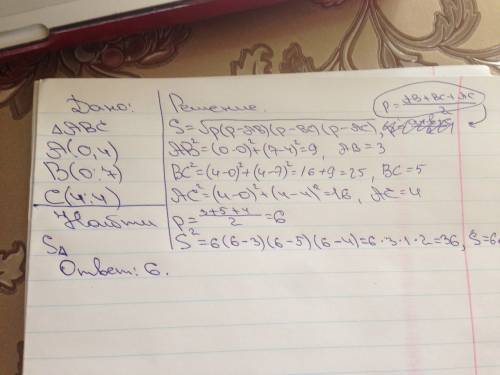 Дано:
ΔABC
A(0,4)
B(0;7)
C(4;4)
Найти
S△
Решение.
p=AB+BC+AC/2
S=√p(p-AB)(p-BC)(p-AC),
AB²=(0-0)²(7-4)²=9, AB=3
BC²=(4-0)²+(4-7)²=16+9=25, BC=5
AC²=(4-0)²+(4-4)²=16, AC=4
p=3+5+4/2=6
S²=6(6-3)(6-5)(6-4)=6·3·1·2=36, S=6
Ответ: 6.